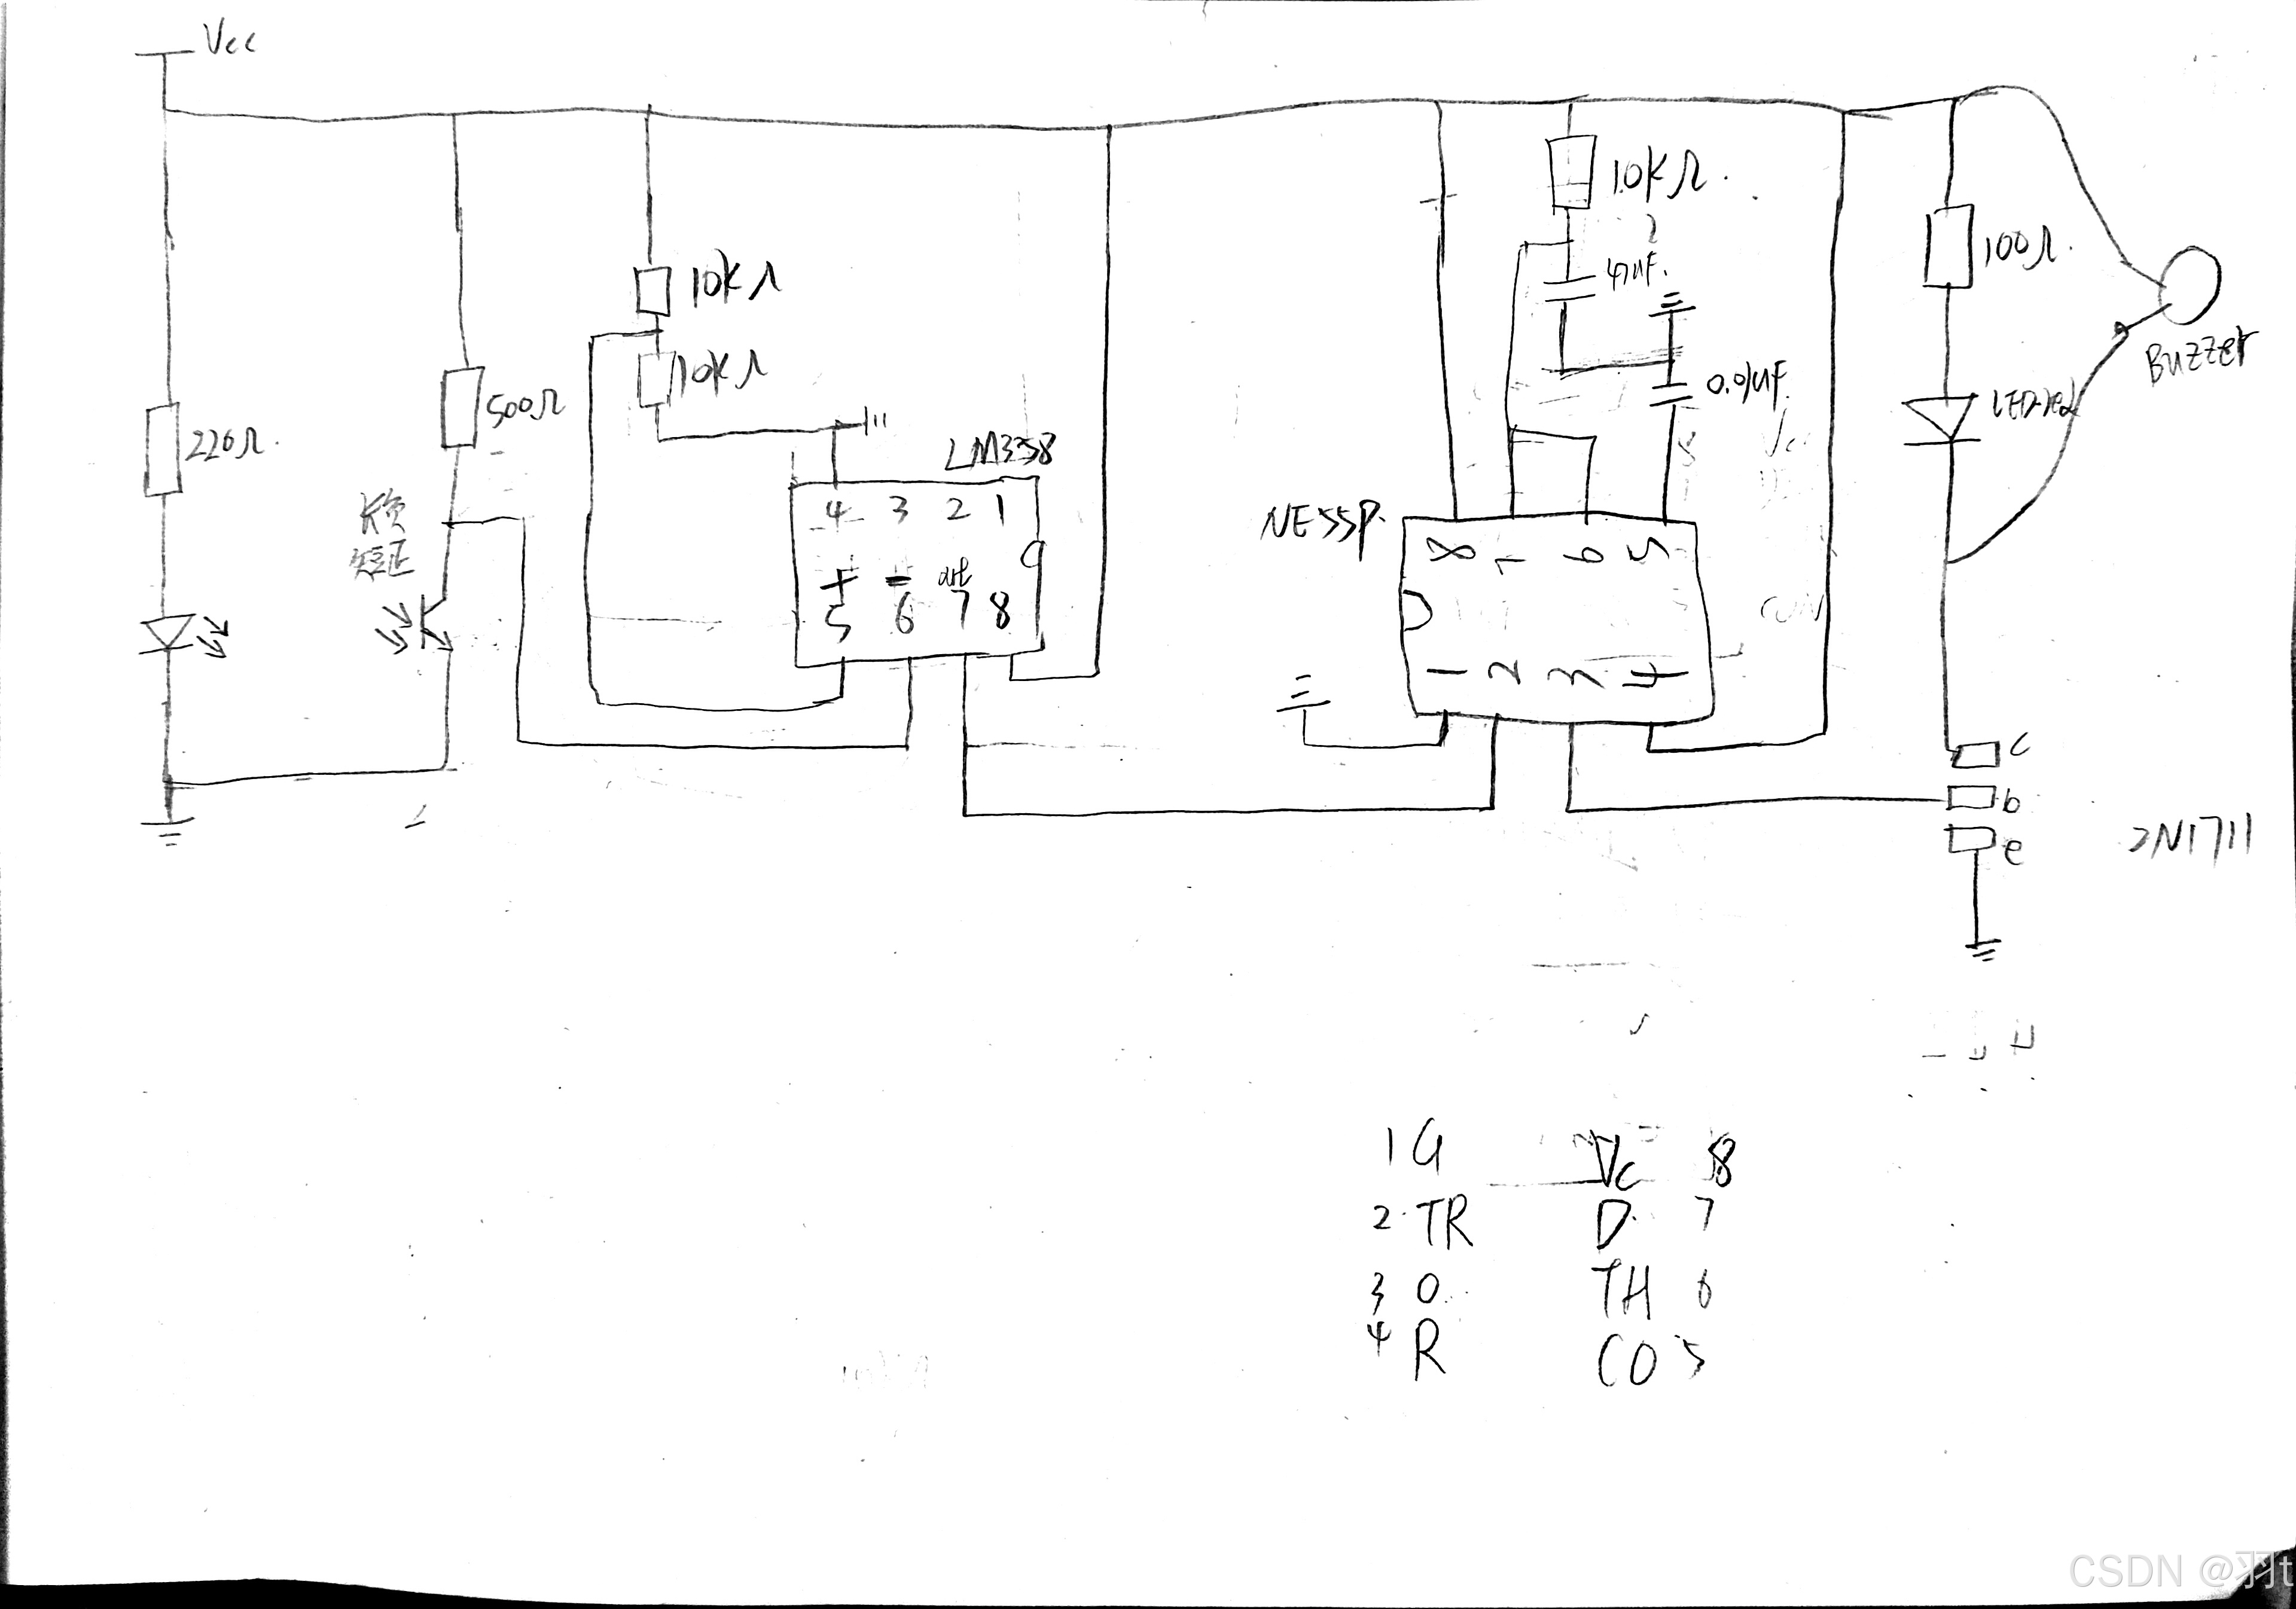 Vcc
10KΩ
100Ω.
47uF.
10KΩ
Buzzer
10KΩ
0.01uF.
LED-red
500Ω
220Ω.
LM358
长负
短正
4 3 2 1
NE55P.
8 7 6 5
+ - out
5 6 7 8
1 2 3 4
c
b
e
2N1711
1 G Vc 8
2. TR D. 7
3 O. TH 6
4 R CO 5
CSDN @羽t